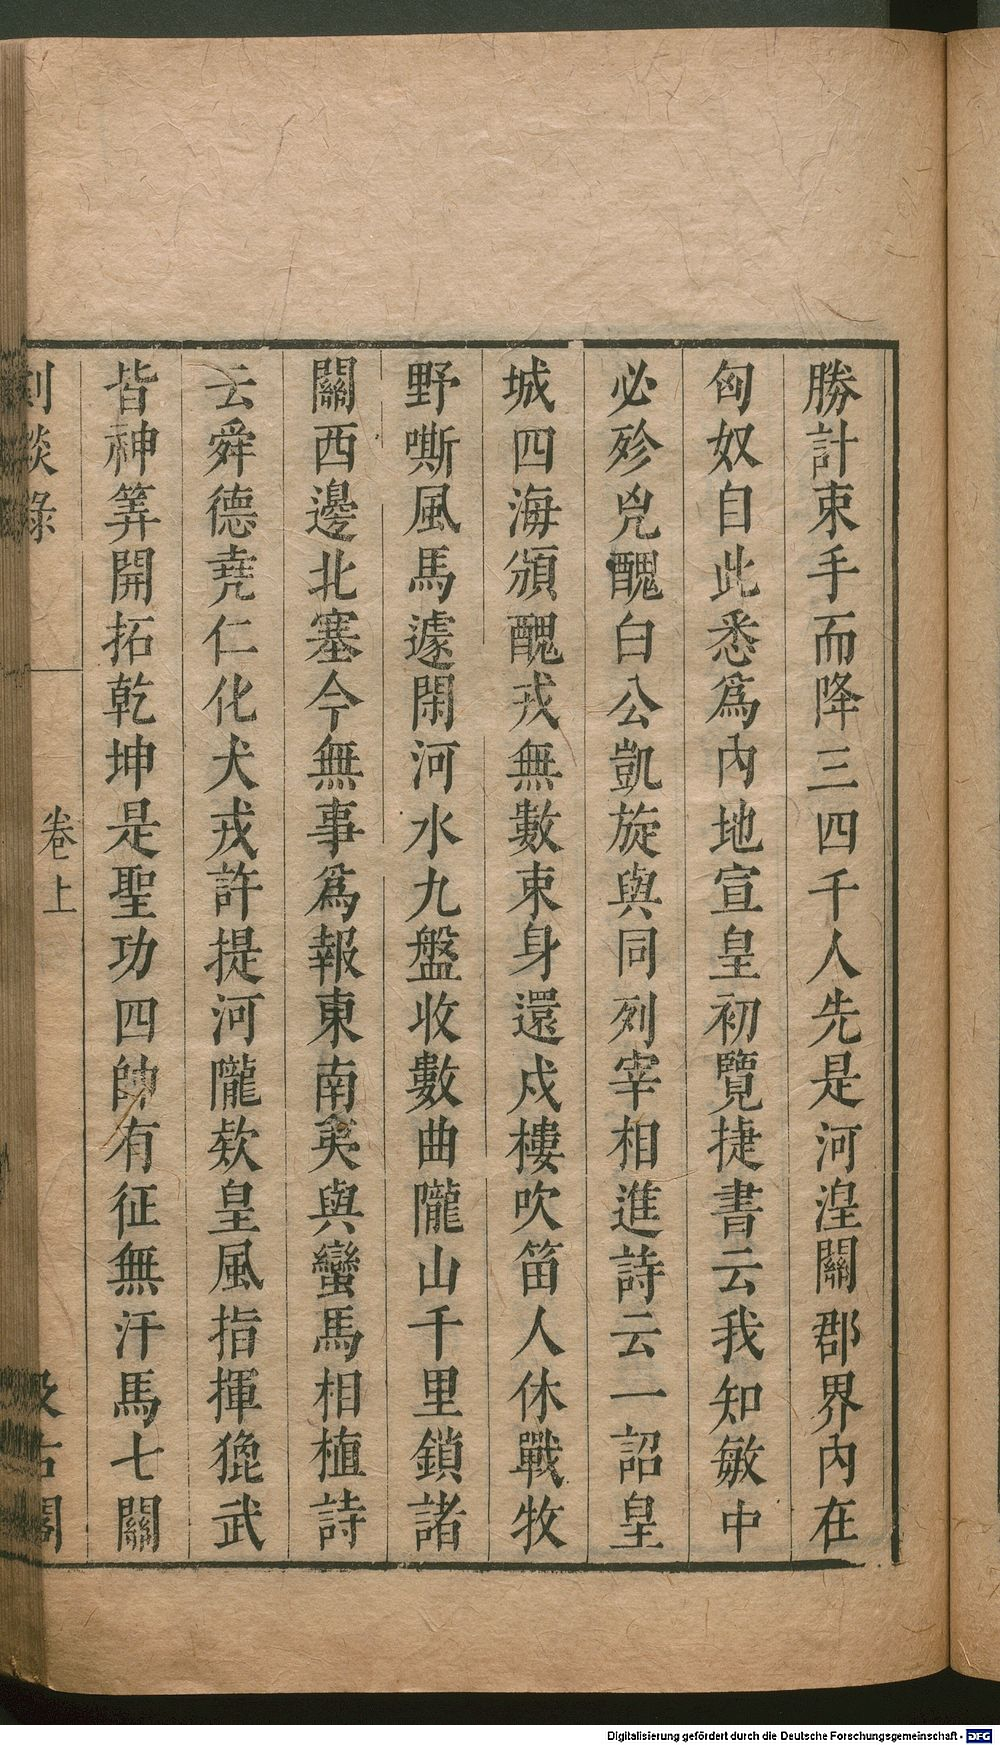 勝計束手而降三四千人先是河湟關郡界內在
匈奴自此悉爲內地宣皇初覽捷書云我知敏中
必殄兇醜白公凱旋與同列宰相進詩云一詔皇
城四海頒醜戎無數束身還戍樓吹笛人休戰牧
野嘶風馬遽閑河水九盤收數曲隴山千里鎖諸
關西邊北塞今無事爲報東南夷與蠻馬相植詩
云舜德堯仁化犬戎許提河隴欵皇風指揮㹸武
皆神筭開拓乾坤是聖功四帥有征無汗馬七關
劇談錄
卷上
汲古閣
Digitalisierung gefördert durch die Deutsche Forschungsgemeinschaft - DFG